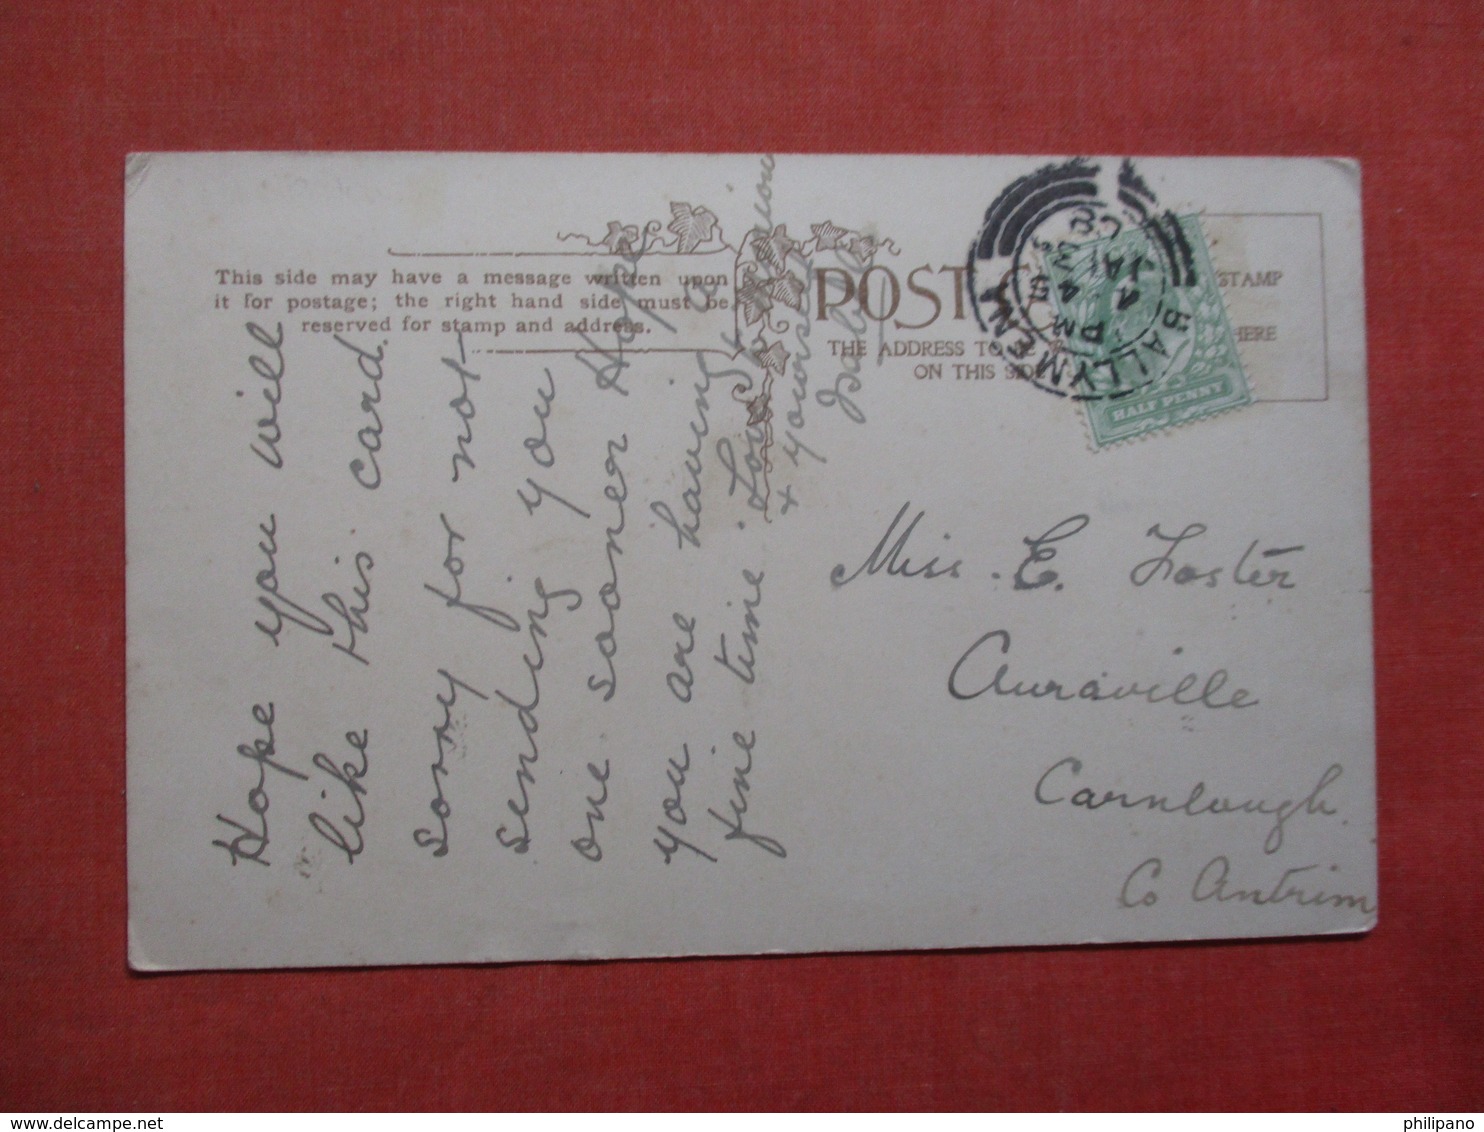 This side may have a message written upon
it for postage; the right hand side must be
reserved for stamp and address.
POST
STAMP
HERE
THE ADDRESS TO BE
ON THIS SIDE
BALLYMENA
4 45 PM
JA 4
HALF PENNY
Hope you will
like this card.
sorry for not
sending you
one sooner Hope
you are having a
fine time. Love to
& yourself
Isabel
Miss. E. Foster
Auraville
Carnlough.
Co Antrim
philipano